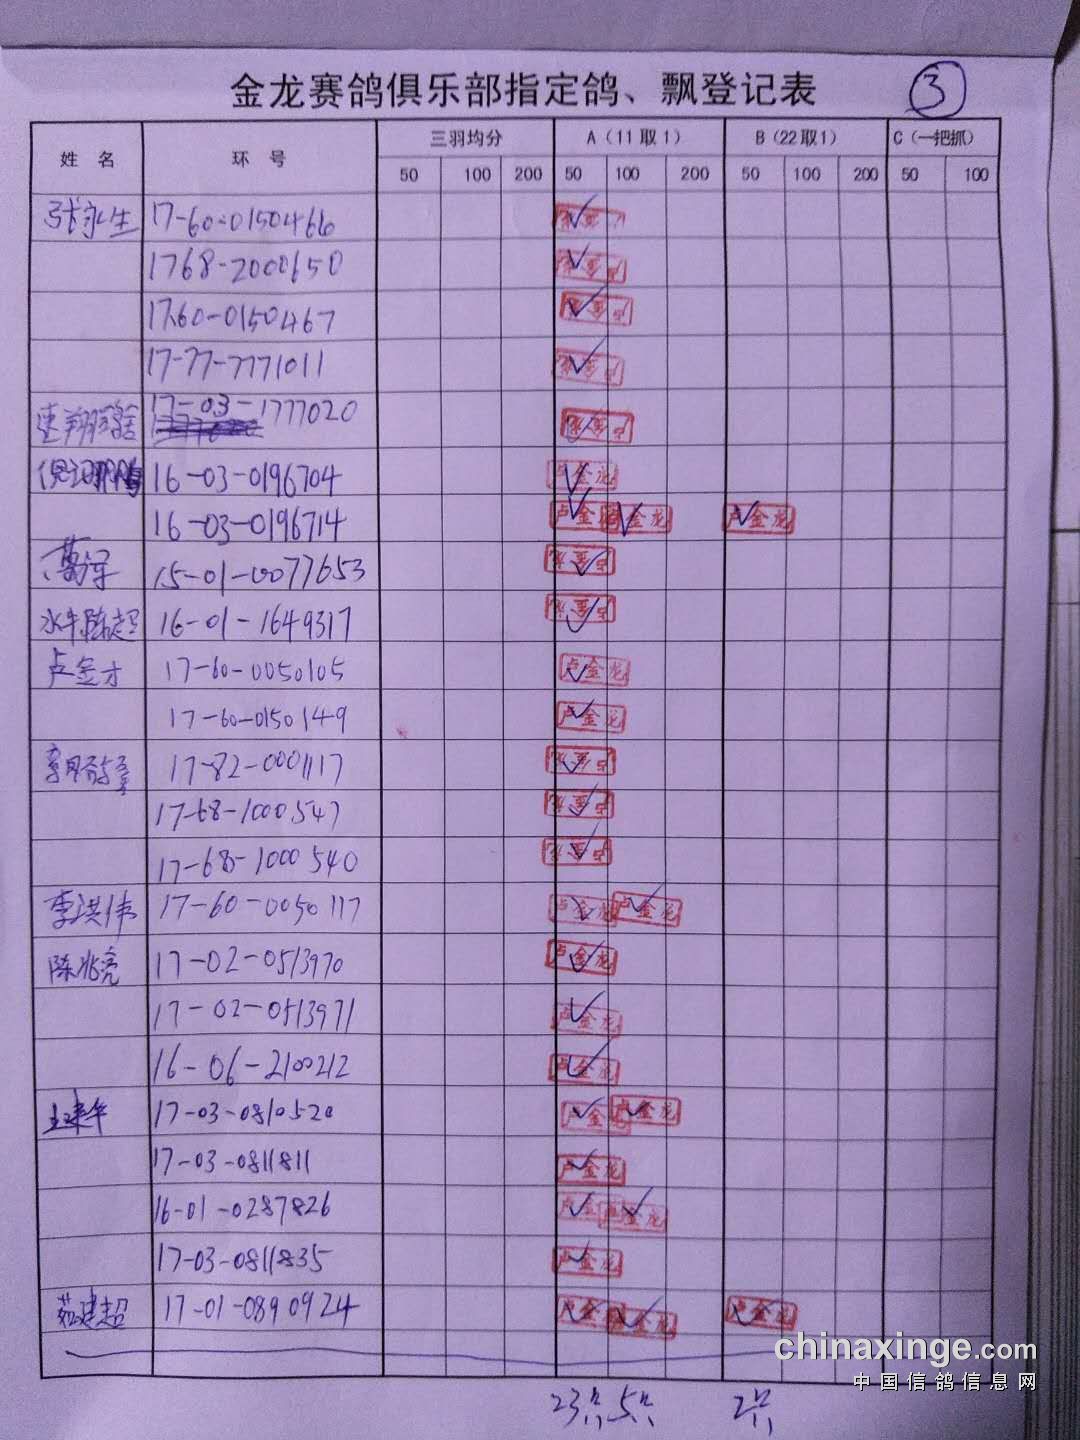 金龙赛鸽俱乐部指定鸽、飘登记表 ③
姓 名 环 号 三羽均分 A（11取1） B（22取1） C（一把抓）
50 100 200 50 100 200 50 100 200 50 100
张永生 17-60-0150466
1768-2000650
1760-0150467
17-77-7771011
17-03-1777020
16-03-0196704 卢金龙
16-03-0196714 卢金 金龙 卢金龙
15-01-0077653
水牛陈超 16-01-1649317
卢金才 17-60-0050105 卢金龙
17-60-0150149 卢金龙
17-82-0001117
17-68-1000547
17-68-1000540
李洪伟 17-60-0050117 卢金龙 卢金龙
陈兆亮 17-02-0513970 卢金龙
17-02-0513971 卢金龙
16-06-2100212 卢金龙
17-03-0810520 卢金龙 卢金龙
17-03-0811811 卢金龙
16-01-0287826 卢金 金龙
17-03-0811835 卢金龙
茹建超 17-01-0890924 卢金 卢金龙 卢金龙
23只 5只 2只
chinaxinge.com
中国信鸽信息网